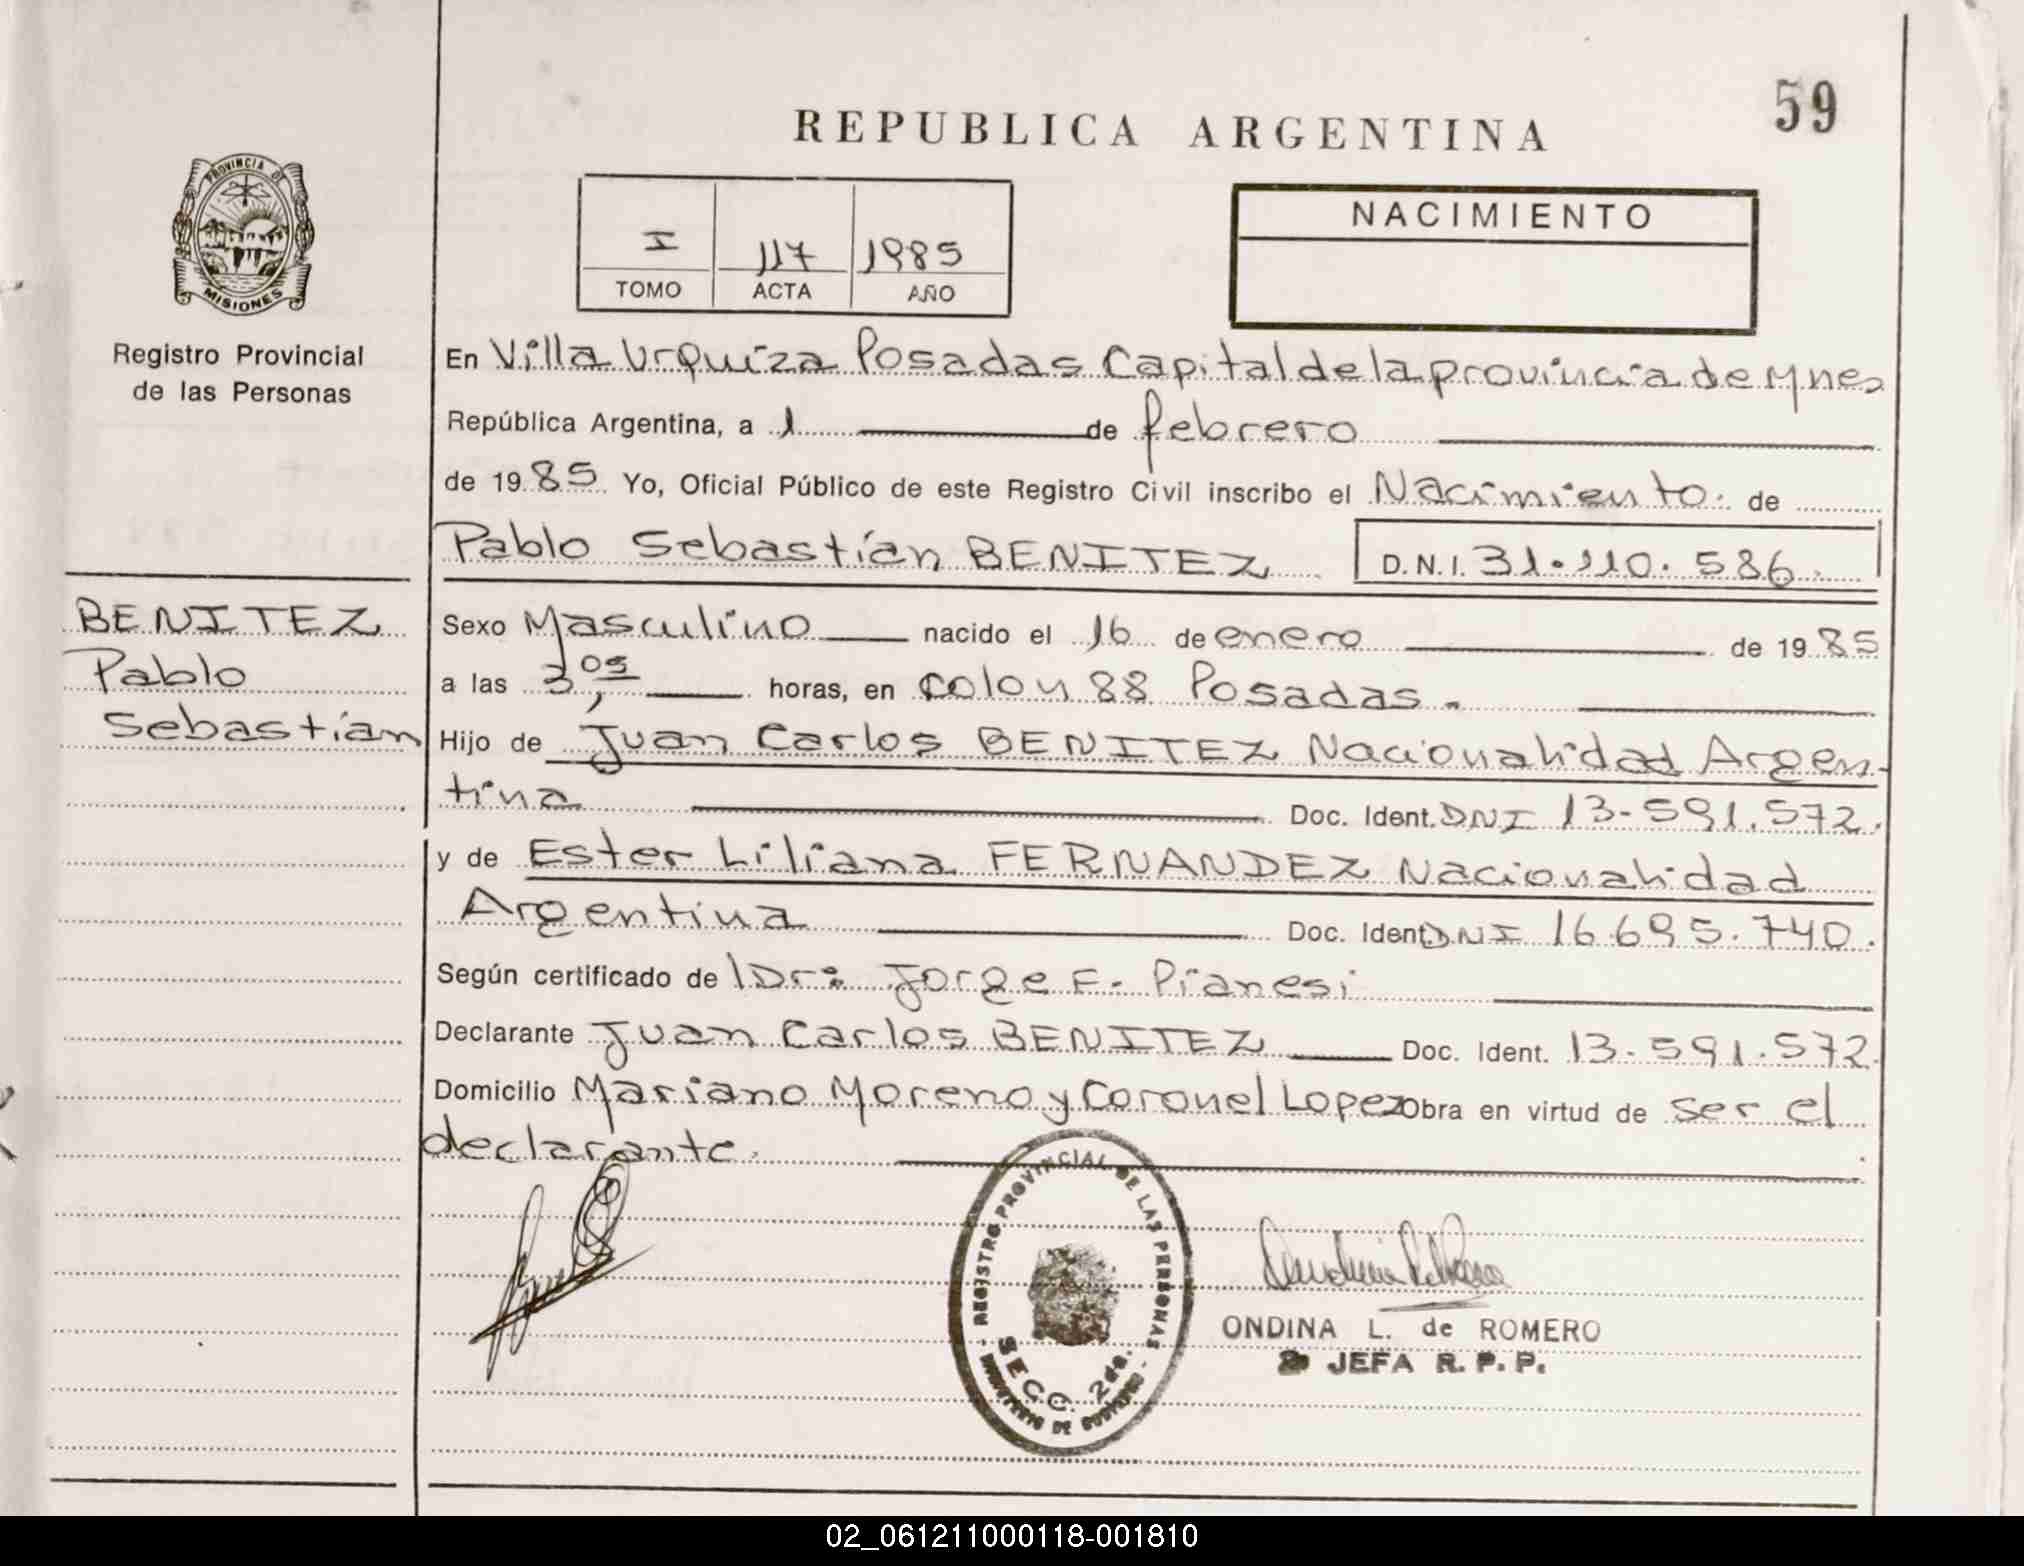 59
REPUBLICA ARGENTINA
PROVINCIA DE
MISIONES
Registro Provincial
de las Personas
I 117 1985
TOMO ACTA AÑO
NACIMIENTO
En Villa Urquiza Posadas Capital de la provincia de Mnes
República Argentina, a 1 de febrero
de 1985 Yo, Oficial Público de este Registro Civil inscribo el Nacimiento. de
Pablo Sebastián BENITEZ D.N.I. 31.110.586.
BENITEZ
Pablo
Sebastián
Sexo Masculino nacido el 16 de enero de 1985
a las 3,05 horas, en Colon 88 Posadas.
Hijo de Juan Carlos BENITEZ Nacionalidad Argen-
tina Doc. Ident. DNI 13-591.572.
y de Ester Liliana FERNANDEZ Nacionalidad
Argentina Doc. Ident. DNI 16.695.740.
Según certificado de Dr: Jorge F. Pianesi
Declarante Juan Carlos BENITEZ Doc. Ident. 13-591.572.
Domicilio Mariano Moreno y Coronel Lopez Obra en virtud de ser el
declarante.
- REGISTRO PROVINCIAL DE LAS PERSONAS -
SECC. 2da.
MINISTERIO DE GOBIERNO
ONDINA L. de ROMERO
JEFA R.P.P.
02_061211000118-001810